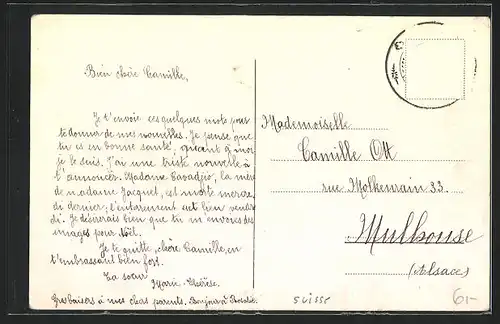 Bien chère Camille,
Je t'envoie ces quelques mots pour
te donner de mes nouvelles. Je pense que
tu es en bonne santé, quant à moi
je le suis. J'ai une triste nouvelle à
t'annoncer. Madame la mère
de madame Jacquet, est morte mercre
di dernier; l'enterrement eut lieu vendre
di. Je désirerais bien que tu m'envoies des
images pour Noël.
Je te quitte, chère Camille, en
t'embrassant bien fort.
Ta sœur
Marie-Thérèse.
Gros baisers à mes chers parents. Bonjour à
Mademoiselle
Camille Ott
rue 33.
Mulhouse
(Alsace)
Suisse
6,-